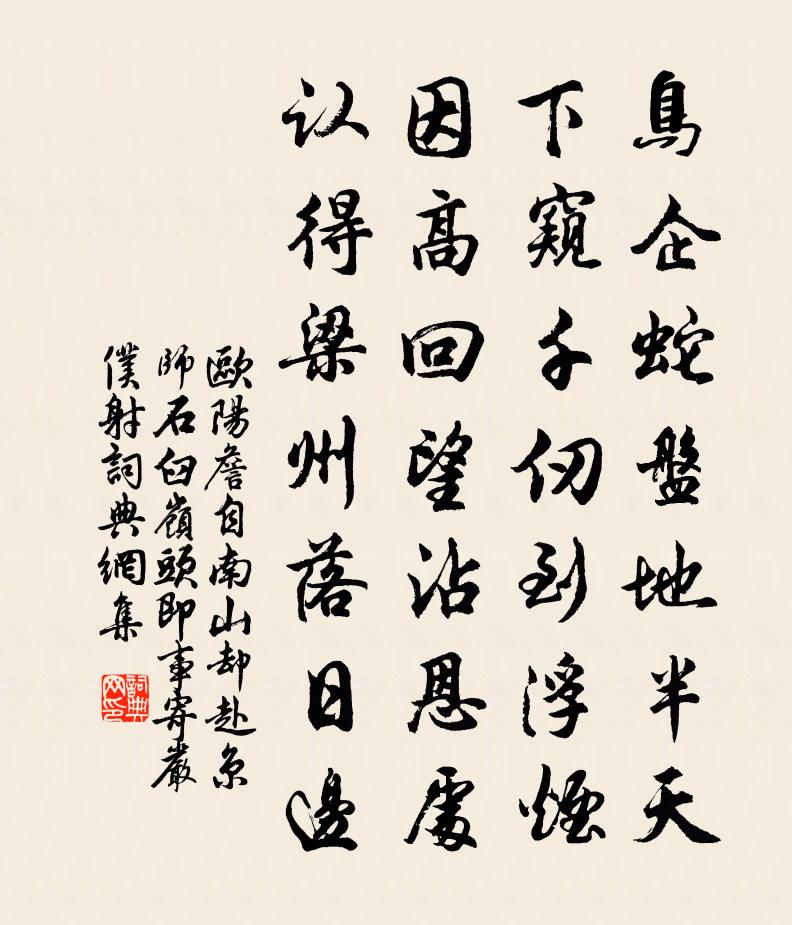 鳥企蛇盤地半天
下窺千仞到浮煙
因高回望沾恩處
认得梁州落日邊
歐陽詹自南山却赴京
師石臼嶺頭即事寄嚴
僕射詞典網集
詞典
网印